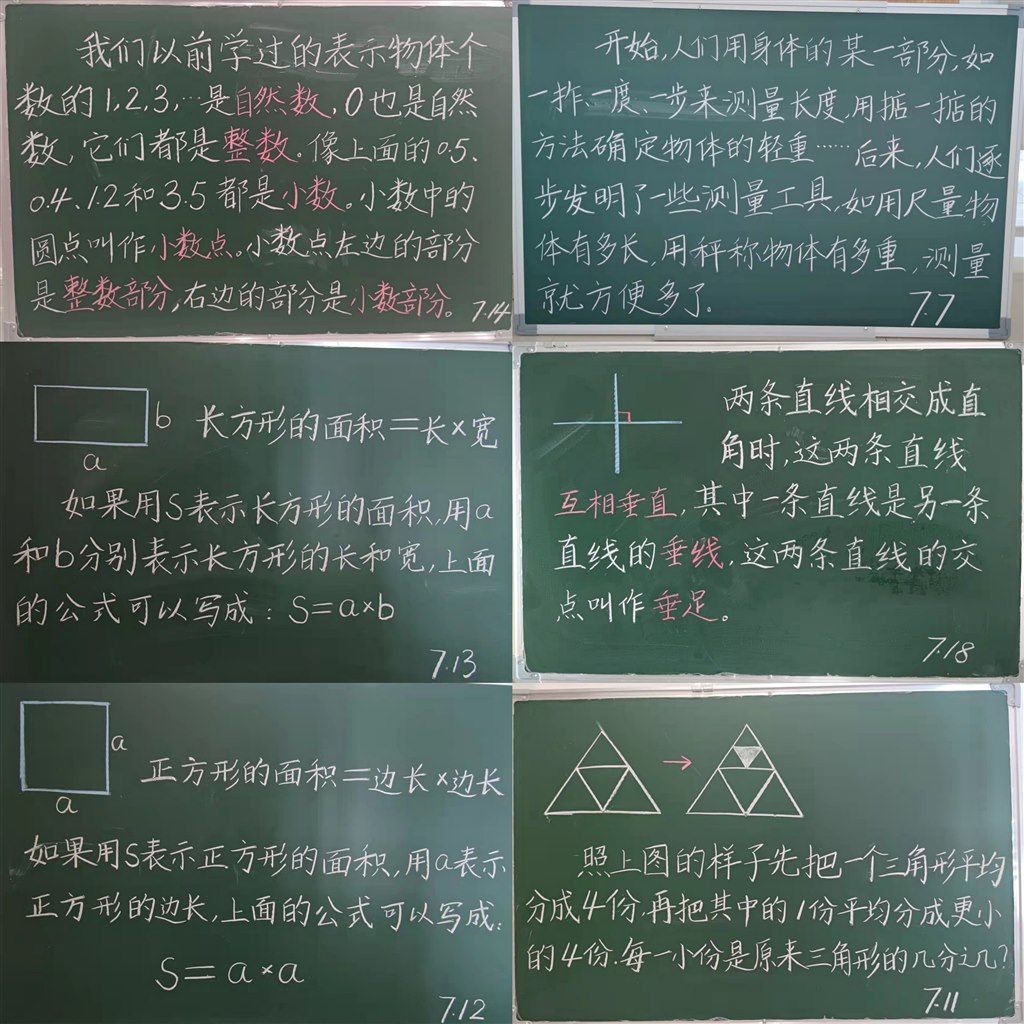 我们以前学过的表示物体个
数的1,2,3,…是自然数,0也是自然
数,它们都是整数。像上面的0.5、
0.4、1.2和3.5都是小数。小数中的
圆点叫作小数点。小数点左边的部分
是整数部分,右边的部分是小数部分。
7.14
开始,人们用身体的某一部分,如
一拃、一庹、一步来测量长度,用掂一掂的
方法确定物体的轻重……后来,人们逐
步发明了一些测量工具,如用尺量物
体有多长,用秤称物体有多重,测量
就方便多了。
7.7
b
长方形的面积=长×宽
a
如果用S表示长方形的面积,用a
和b分别表示长方形的长和宽,上面
的公式可以写成:S=a×b
7.13
两条直线相交成直
角时,这两条直线
互相垂直,其中一条直线是另一条
直线的垂线,这两条直线的交
点叫作垂足。
7.18
a
正方形的面积=边长×边长
a
如果用S表示正方形的面积,用a表示
正方形的边长,上面的公式可以写成:
S=a×a
7.12
照上图的样子先把一个三角形平均
分成4份,再把其中的1份平均分成更小
的4份.每一小份是原来三角形的几分之几?
7.11